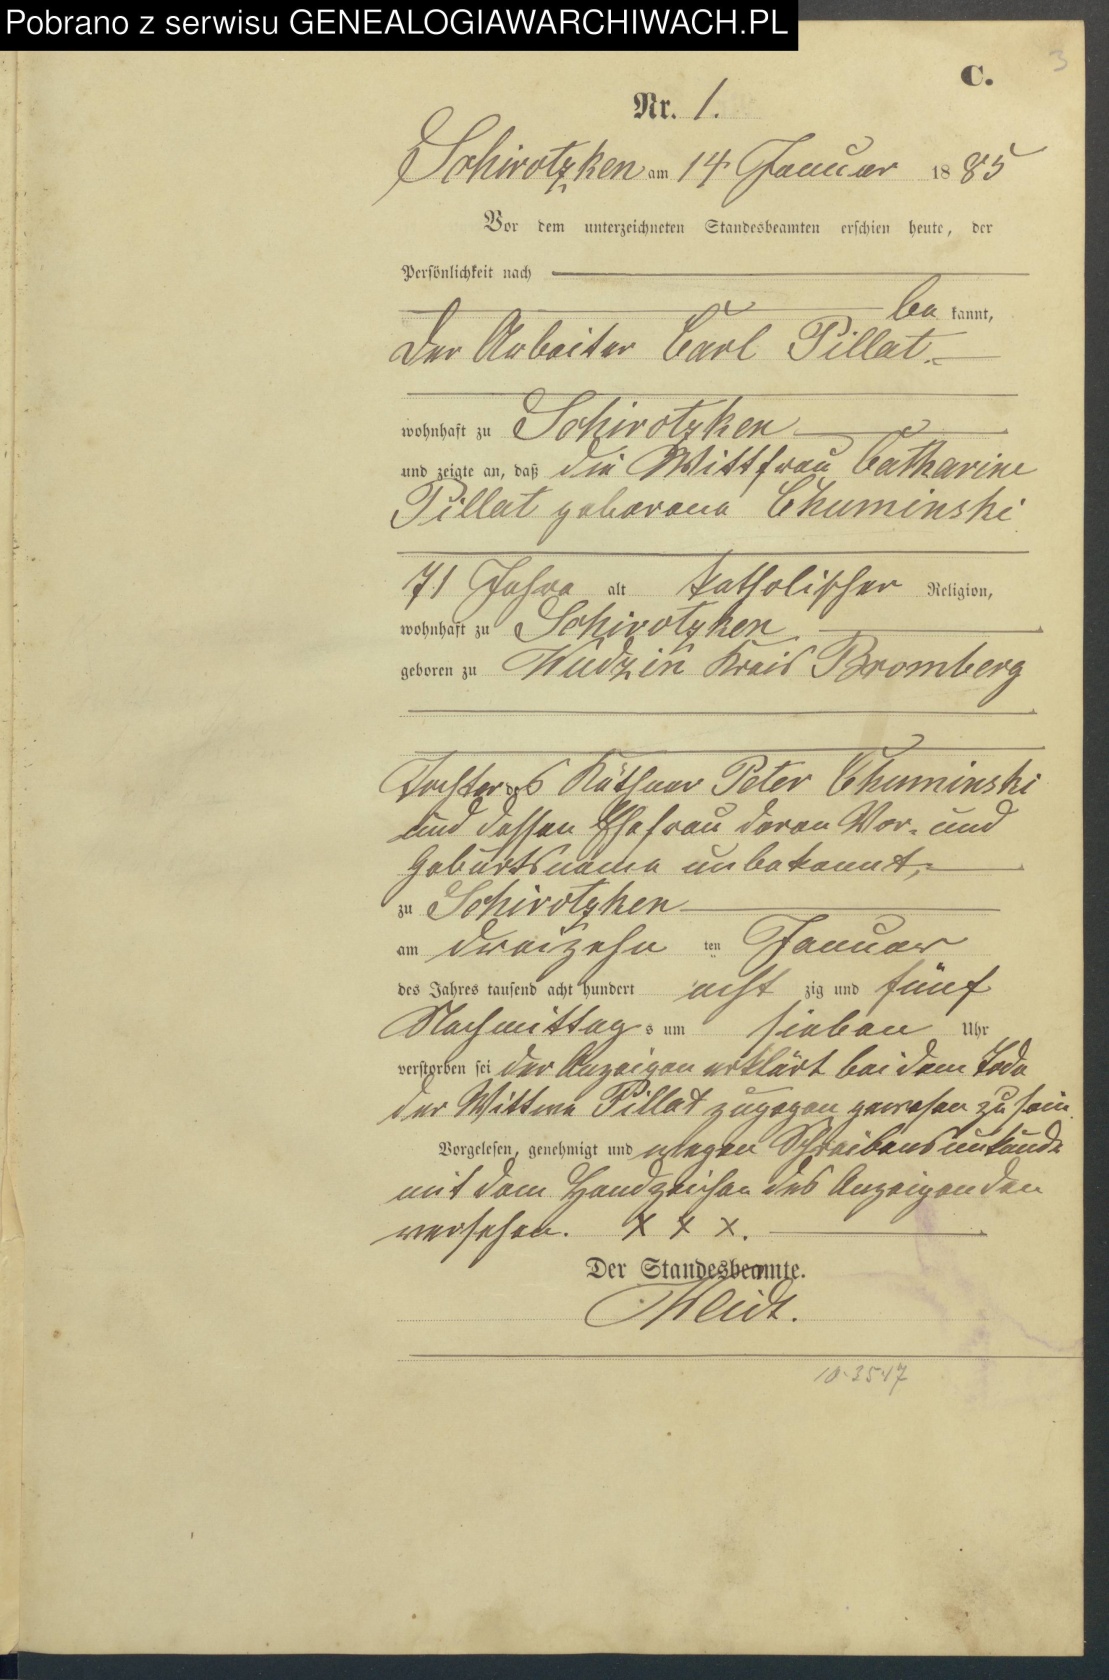 Pobrano z serwisu GENEALOGIAWARCHIWACH.PL
3
C.
Nr. 1.
Schirotzken am 14 Januar 1885
Vor dem unterzeichneten Standesbeamten erschien heute, der
Persönlichkeit nach
be kannt,
der Arbeiter Carl Pillat.
wohnhaft zu Schirotzken
und zeigte an, daß die Wittfrau Catharine
Pillat geborene Chuminski
71 Jahre alt katholischer Religion,
wohnhaft zu Schirotzken
geboren zu Wudzin Kreis Bromberg
Tochter des Käthner Peter Chuminski
und dessen Ehefrau deren Vor- und
Geburtsname unbekannt,
zu Schirotzken
am dreizehn ten Januar
des Jahres tausend acht hundert acht zig und fünf
Nachmittag s um sieben Uhr
verstorben sei der Anzeigen erklärt bei dem Tode
der Wittwe Pillat zugegen gewesen zu sein.
Vorgelesen, genehmigt und wegen Schreibensunkunde
mit dem Handzeichen des Anzeigenden
versehen. X X X.
Der Standesbeamte.
10-3517